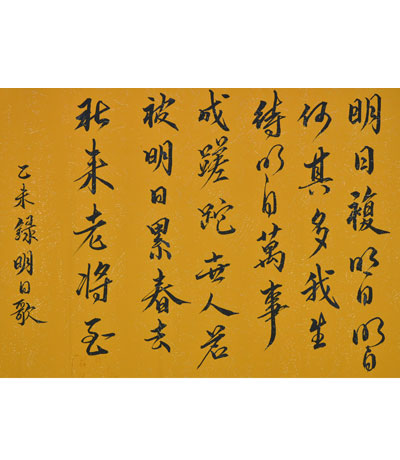 明日複明日明日
何其多我生
待明日萬事
成蹉跎世人若
被明日累春去
秋来老将至
乙未録明日歌